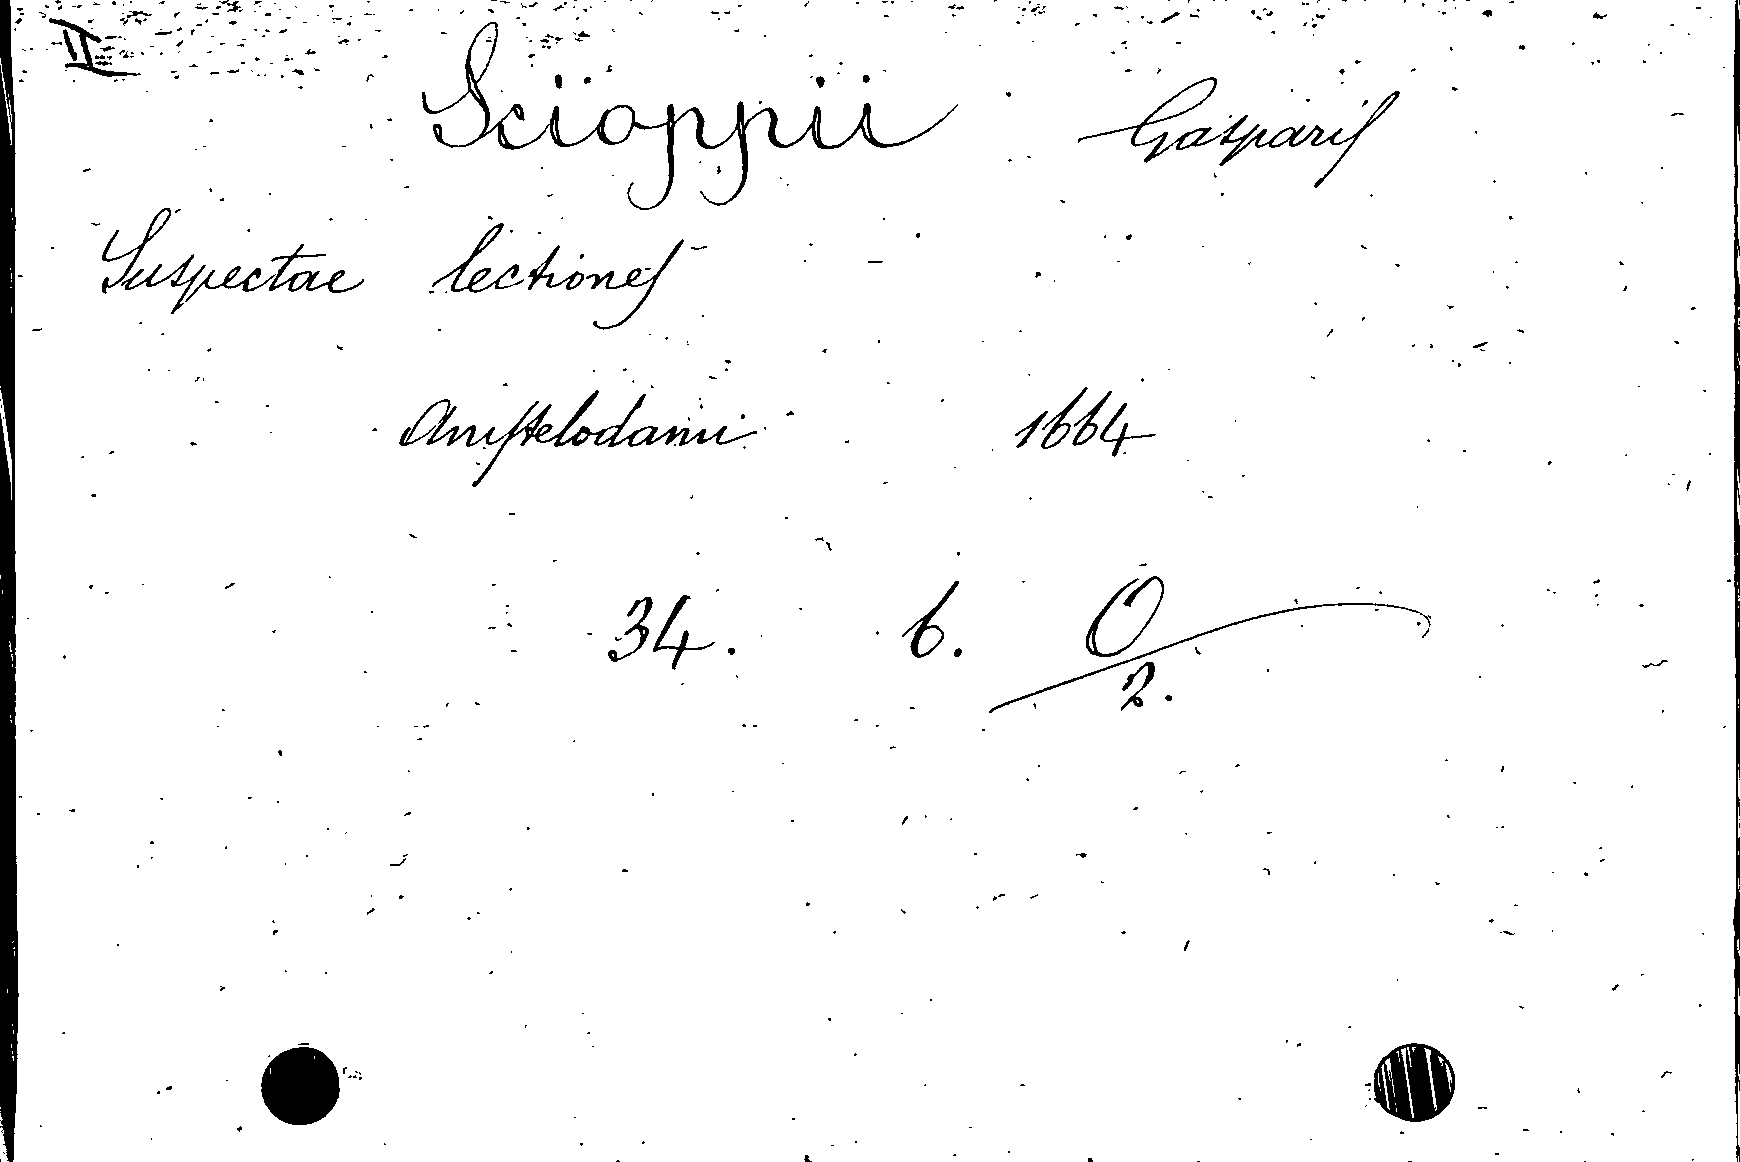 II
Scioppii Gasparis
Suspectae lectiones
Amstelodami 1664
34. b. O/2.